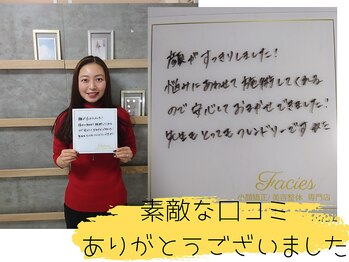 顔がすっきりしました!
悩みにあわせて施術してくれる
ので安心しておまかせできました!
先生もとってもフレンドリーです
Facies
小顔矯正/美容整体 専門店
素敵な口コミ
ありがとうございました